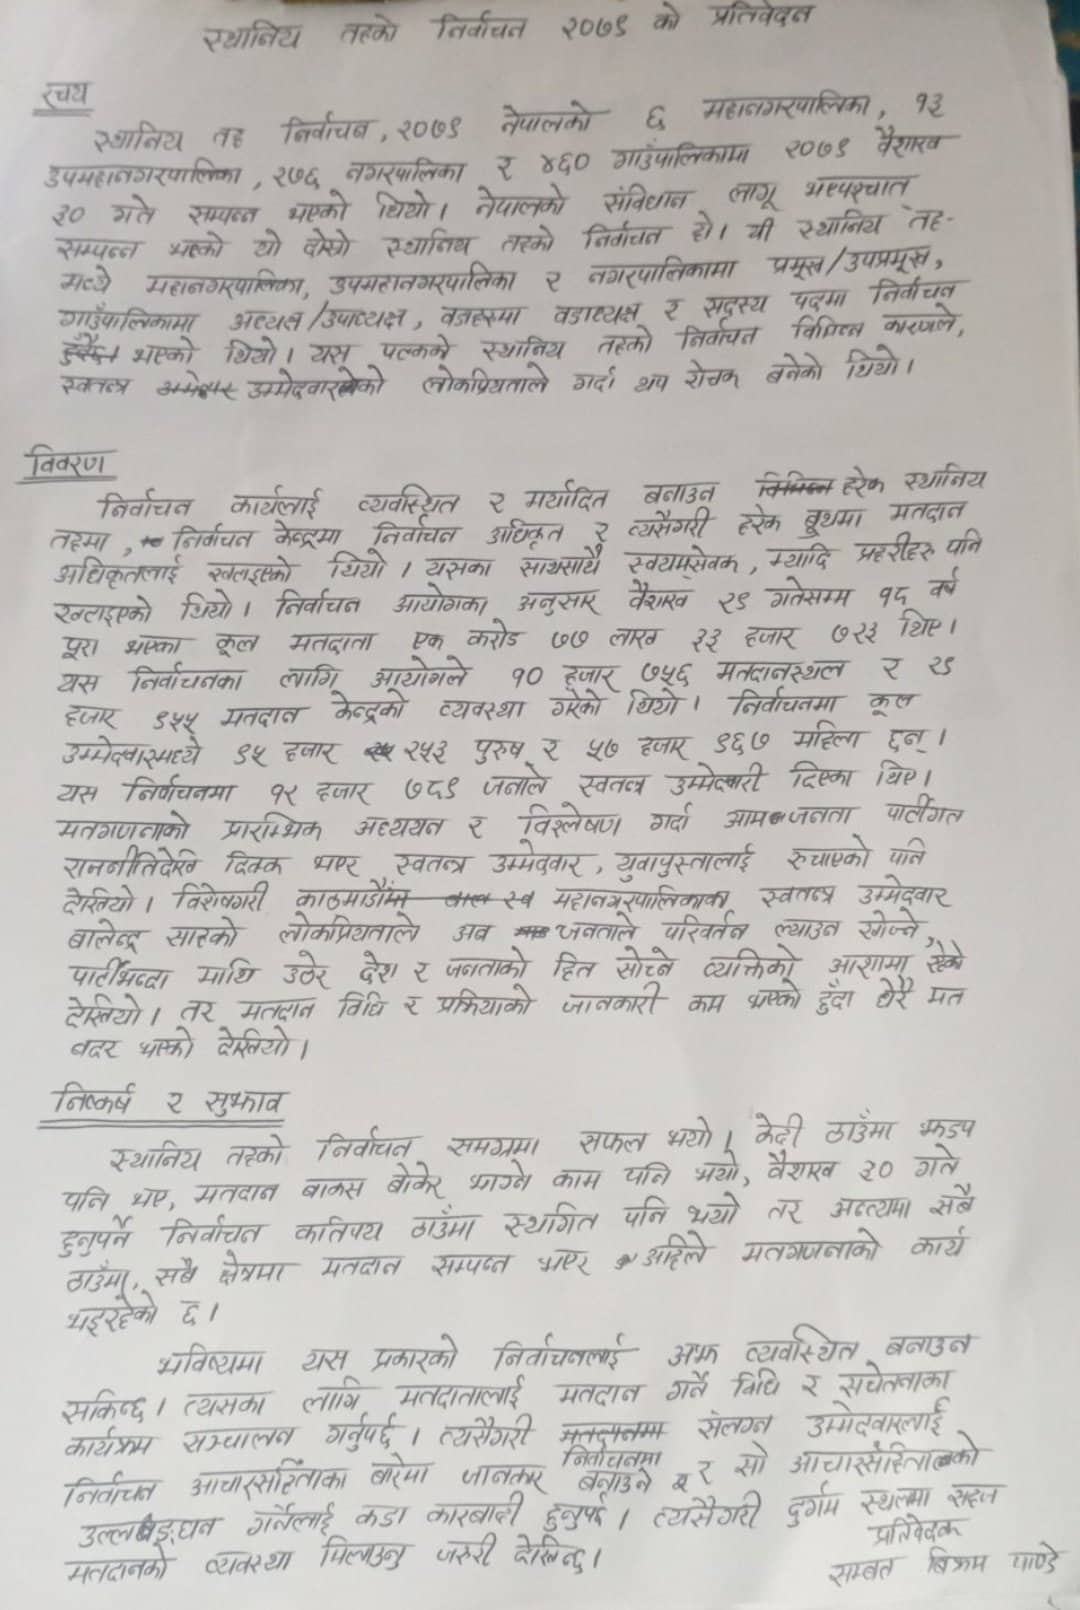 स्थानिय तहको निर्वाचन २०७९ को प्रतिवेदन
स्थानिय तह निर्वाचन, २०७९ नेपालको ६ महानगरपालिका, १३
उपमहानगरपालिका, २७६ नगरपालिका र ४६० गाउँपालिकामा २०७९ वैशाख
३० गते सम्पन्न भएको थियो। नेपालको संविधान लागू भएपश्चात्
सम्पन्न भएको यो दोस्रो स्थानिय तहको निर्वाचन हो। यी स्थानिय तह-
मध्ये महानगरपालिका, उपमहानगरपालिका र नगरपालिकामा प्रमूख/उपप्रमूख,
गाउँपालिकामा अध्यक्ष/उपाध्यक्ष, वडाहरुमा वडाध्यक्ष र सदस्य पदमा निर्वाचन
भएको थियो। यस पल्कको स्थानिय तहको निर्वाचन विभिन्न कारणले,
स्वतन्त्र उम्मेदवारको लोकप्रियताले गर्दा थप रोचक बनेको थियो।
विवरण
निर्वाचन कार्यलाई व्यवस्थित र मर्यादित बनाउन हरेक स्थानिय
तहमा, निर्वाचन केन्द्रमा निर्वाचन अधिकृत र त्यसैगरी हरेक बूथमा मतदान
अधिकृतलाई खटाइएको थियो। यसका साथसाथै स्वयम्सेवक, म्यादि प्रहरीहरु पनि
खटाइएको थियो। निर्वाचन आयोगका अनुसार वैशाख २९ गतेसम्म १८ वर्ष
पूरा भएका कूल मतदाता एक करोड ७७ लाख ३३ हजार ७२३ थिए।
यस निर्वाचनका लागि आयोगले १० हजार ७५६ मतदानस्थल र २१
हजार ९५५ मतदान केन्द्रको व्यवस्था गरेको थियो। निर्वाचनमा कूल
उम्मेदवारमध्ये ९५ हजार २५३ पुरुष र ५७ हजार ९६७ महिला छन्।
यस निर्वाचनमा १२ हजार ७८९ जनाले स्वतन्त्र उम्मेदवारी दिएका थिए।
मतगणनाको प्रारम्भिक अध्ययन र विश्लेषण गर्दा आम जनता पार्टीगत
राजनीतिदेखि दिक्क भएर स्वतन्त्र उम्मेदवार, युवापुस्तालाई रुचाएको पनि
देखियो। विशेषगरी काठमाडौं महानगरपालिकाका स्वतन्त्र उम्मेदवार
बालेन्द्र साहको लोकप्रियताले अब जनताले परिवर्तन ल्याउन खोज्ने,
पार्टीभन्दा माथि उठेर देश र जनताको हित सोच्ने व्यक्तिको आशामा रहेको
देखियो। तर मतदान विधि र प्रक्रियाको जानकारी कम भएको हुँदा धेरै मत
बदर भएको देखियो।
निष्कर्ष र सुझाव
स्थानिय तहको निर्वाचन समग्रमा सफल भयो। केही ठाउँमा झडप
पनि भए, मतदान बाकस बोकेर भाग्ने काम पनि भयो, वैशाख ३० गते
हुनुपर्ने निर्वाचन कतिपय ठाउँमा स्थगित पनि भयो तर अन्त्यमा सबै
ठाउँमा, सबै क्षेत्रमा मतदान सम्पन्न भएर अहिले मतगणनाको कार्य
भइरहेको छ।
भविष्यमा यस प्रकारको निर्वाचनलाई अझ व्यवस्थित बनाउन
सकिन्छ। त्यसका लागि मतदातालाई मतदान गर्ने विधि र सचेतनाका
कार्यक्रम सञ्चालन गर्नुपर्छ। त्यसैगरी निर्वाचनमा संलग्न उम्मेदवारलाई
निर्वाचन आचारसंहिताका बारेमा जानकार बनाउने र सो आचारसंहिताको
उल्लङ्घन गर्नेलाई कडा कारबाही हुनुपर्छ। त्यसैगरी दुर्गम स्थलमा सहज
मतदानको व्यवस्था मिलाउनु जरुरी देखिन्छ।
प्रतिवेदक
सम्बत बिक्रम पाण्डे